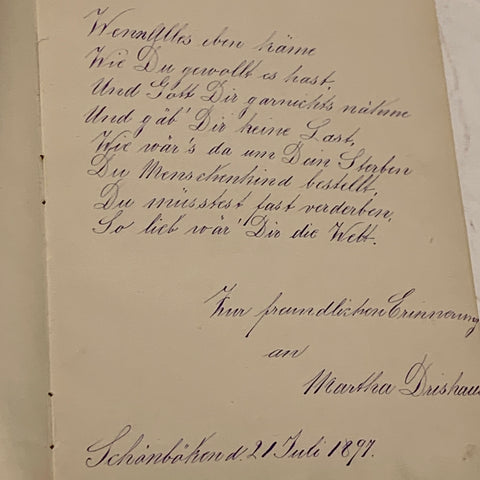 Wenn Alles eben käme
Wie Du gewollt es hast,
Und Gott Dir garnichts nähme
Und gäb' Dir keine Last,
Wie wär's da um Dein Sterben
Du Menschenkind bestellt,
Du müsstest fast verderben,
So lieb wär' Dir die Welt.
Zur freundlichen Erinnerung
an
Martha
Schönböken d. 21 Juli 1897.